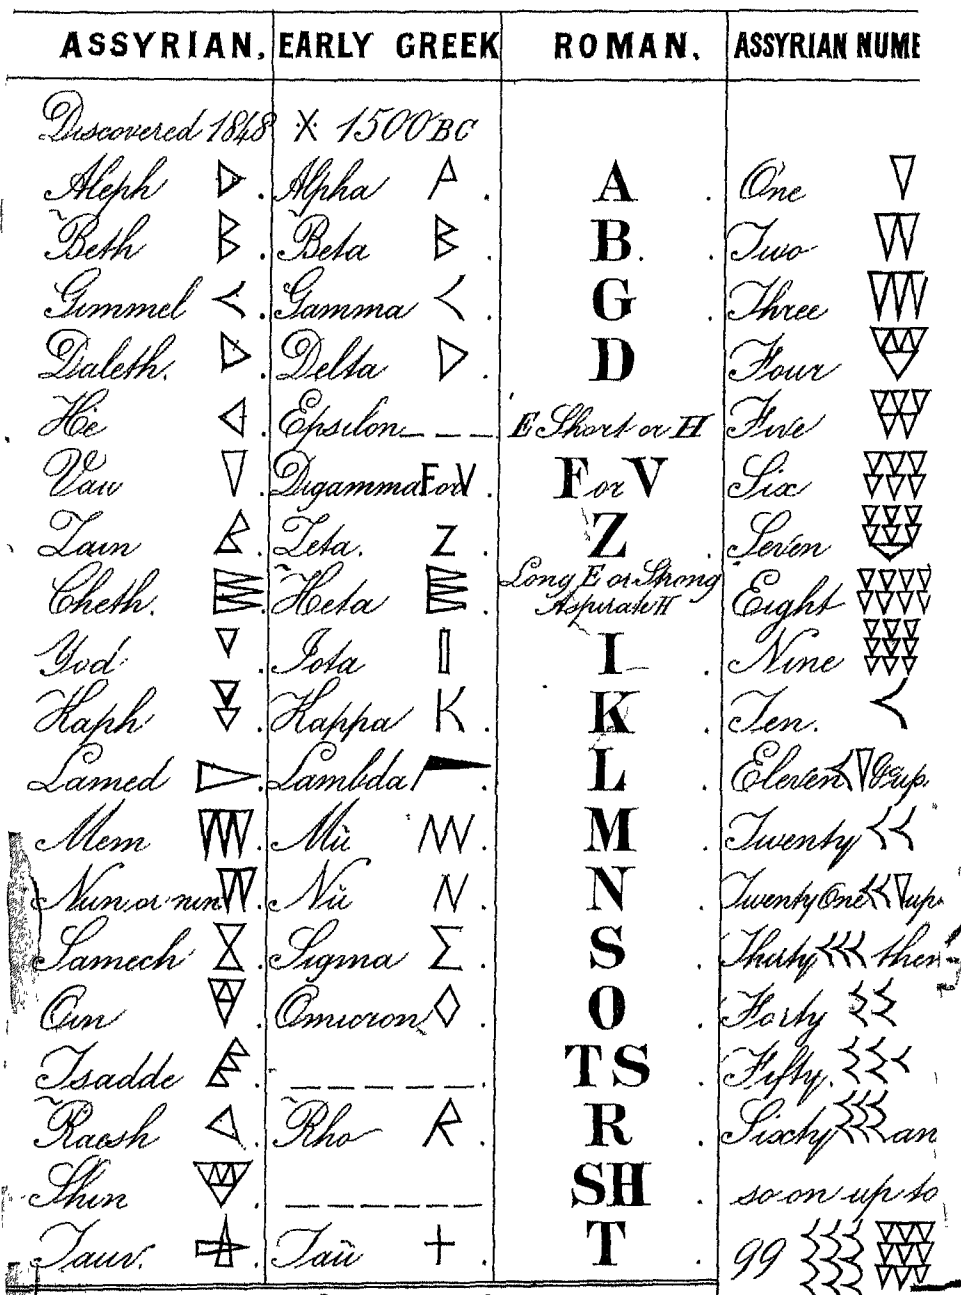 ASSYRIAN. EARLY GREEK ROMAN. ASSYRIAN NUME
Discovered 1848 X 1500 BC
Aleph . Alpha . A . One
Beth . Beta . B . Two
Gimmel . Gamma . G . Three
Daleth. . Delta . D Four
He . Epsilon E Short or H Five
Vau . Digamma F or V . F or V Six
Zain . Zeta. Z . Z . Seven
Cheth. . Heta . Long E or Strong Aspirate H Eight
Yod . Iota I . Nine
Kaph . Kappa K . K . Ten.
Lamed . Lambda . L . Eleven & up.
Mem . Mu . M . Twenty
Nun or nun . Nu N . N . Twenty One up.
Samech . Sigma Σ . S . Thirty then
Oin . Omicron . O . Forty
Tsadde . . TS . Fifty.
Raesh . Rho R . R . Sixty an
Shin . . SH . so on up to
Tauv. . Tau + . T . 99